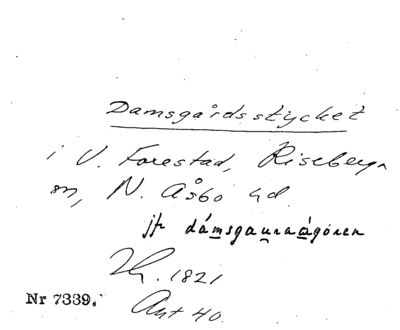 Damsgårdsstycket
i V. Forestad, Riseberga
sn, N. Åsbo hd.
jfr dámsgaunaágören
Lh. 1821
Nr 7339.
Akt 40.